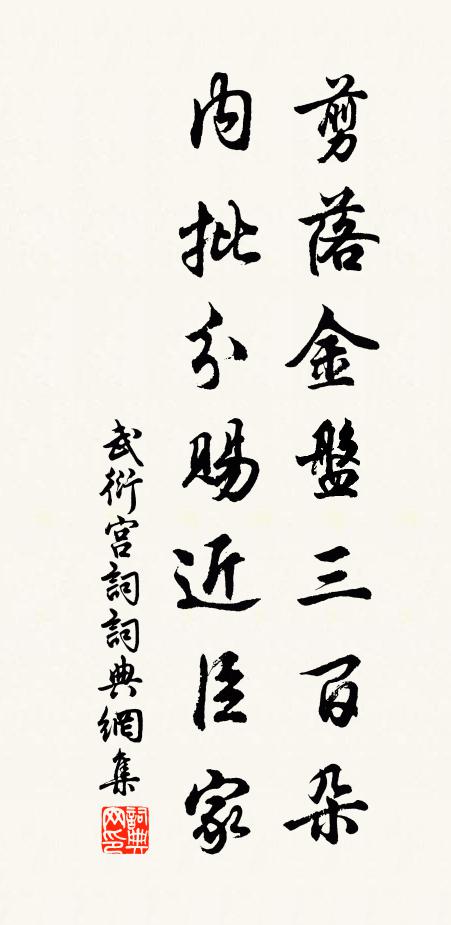 剪落金盤三百朵
内批分賜近臣家
武衍宮詞詞典網集
詞典網印